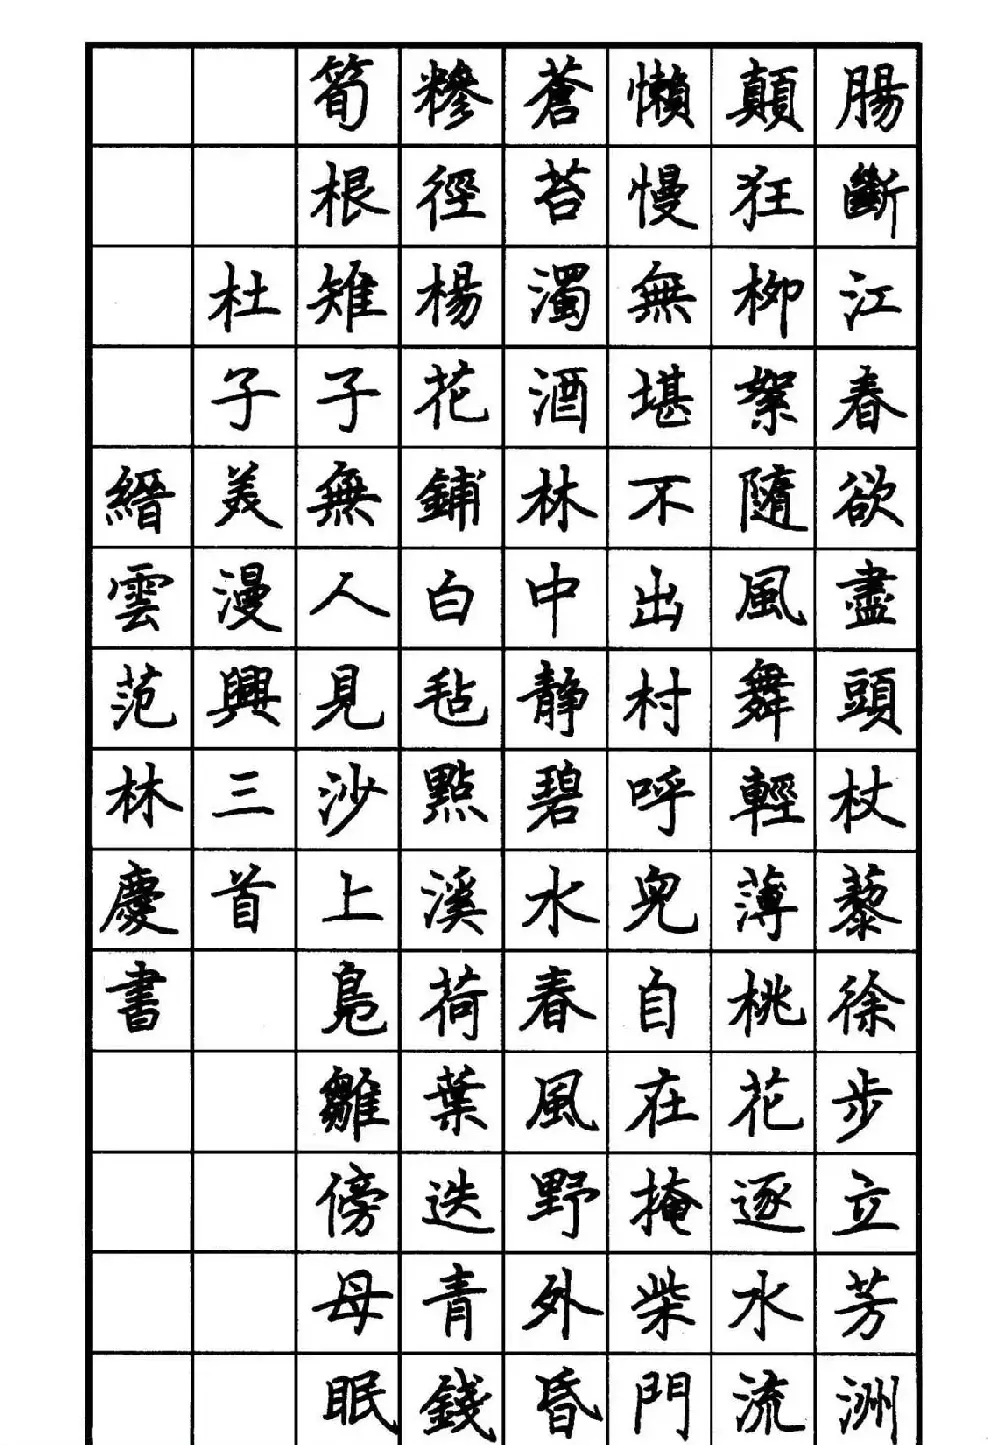 腸斷江春欲盡頭杖藜徐步立芳洲
顛狂柳絮隨風舞輕薄桃花逐水流
懶慢無堪不出村呼兒自在掩柴門
蒼苔濁酒林中靜碧水春風野外昏
糝徑楊花鋪白毡點溪荷葉迭青錢
筍根雉子無人見沙上鳧雛傍母眠
杜子美漫興三首
縉雲范林慶書